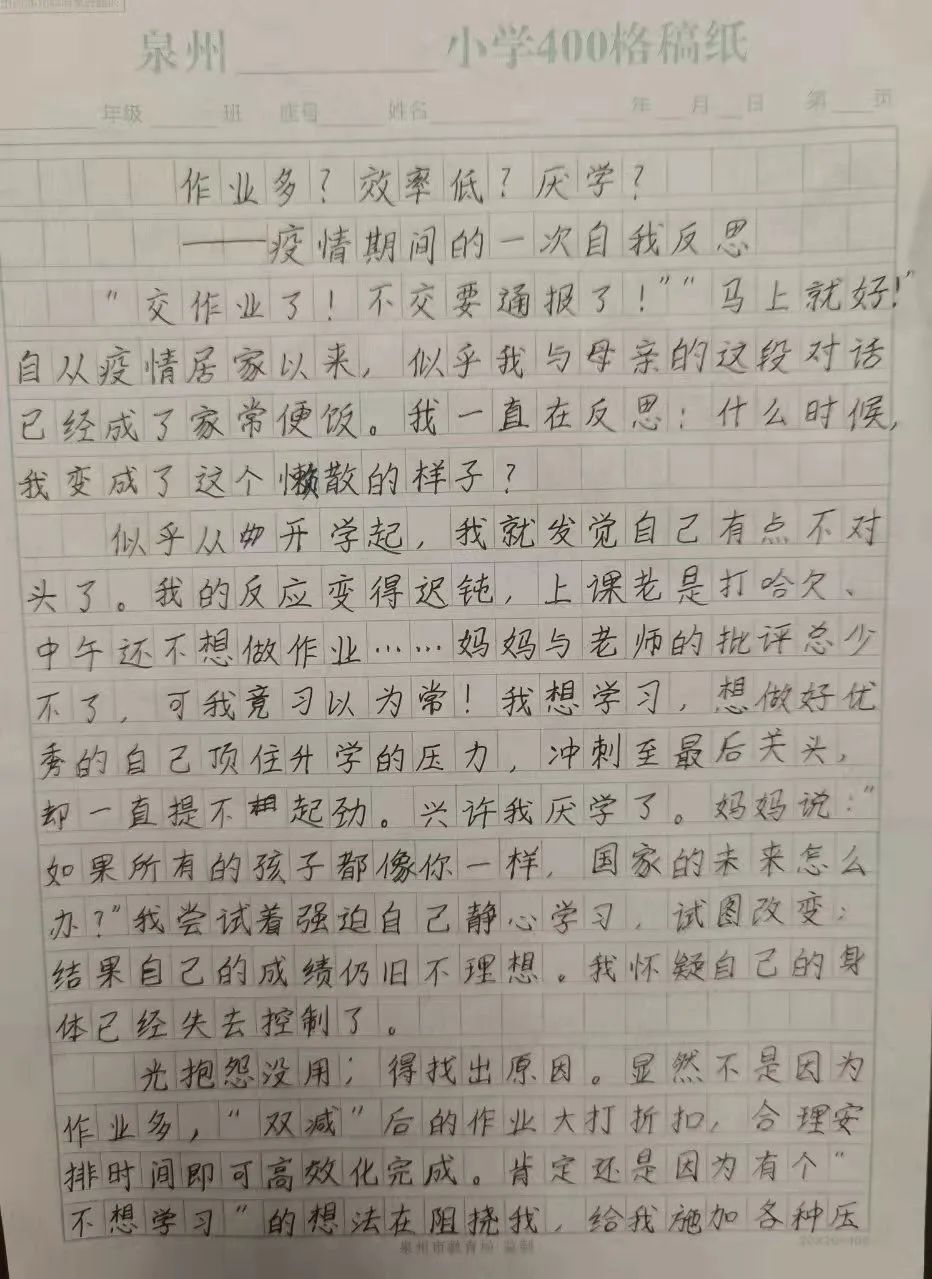 泉州 小学400格稿纸
年级 班 座号 姓名 年 月 日 第 页
作业多？效率低？厌学？
——疫情期间的一次自我反思
“交作业了！不交要通报了！”“马上就好！”
自从疫情居家以来，似乎我与母亲的这段对话
已经成了家常便饭。我一直在反思：什么时候，
我变成了这个懒散的样子？
似乎从开学起，我就发觉自己有点不对
头了。我的反应变得迟钝，上课老是打哈欠、
中午还不想做作业……妈妈与老师的批评总少
不了，可我竟习以为常！我想学习，想做好优
秀的自己顶住升学的压力，冲刺至最后关头，
却一直提不起劲。兴许我厌学了。妈妈说：“
如果所有的孩子都像你一样，国家的未来怎么
办？”我尝试着强迫自己静心学习，试图改变；
结果自己的成绩仍旧不理想。我怀疑自己的身
体已经失去控制了。
光抱怨没用；得找出原因。显然不是因为
作业多，“双减”后的作业大打折扣，合理安
排时间即可高效化完成。肯定还是因为有个“
不想学习”的想法在阻挠我，给我施加各种压
泉州市教育局 监制
20×20=400